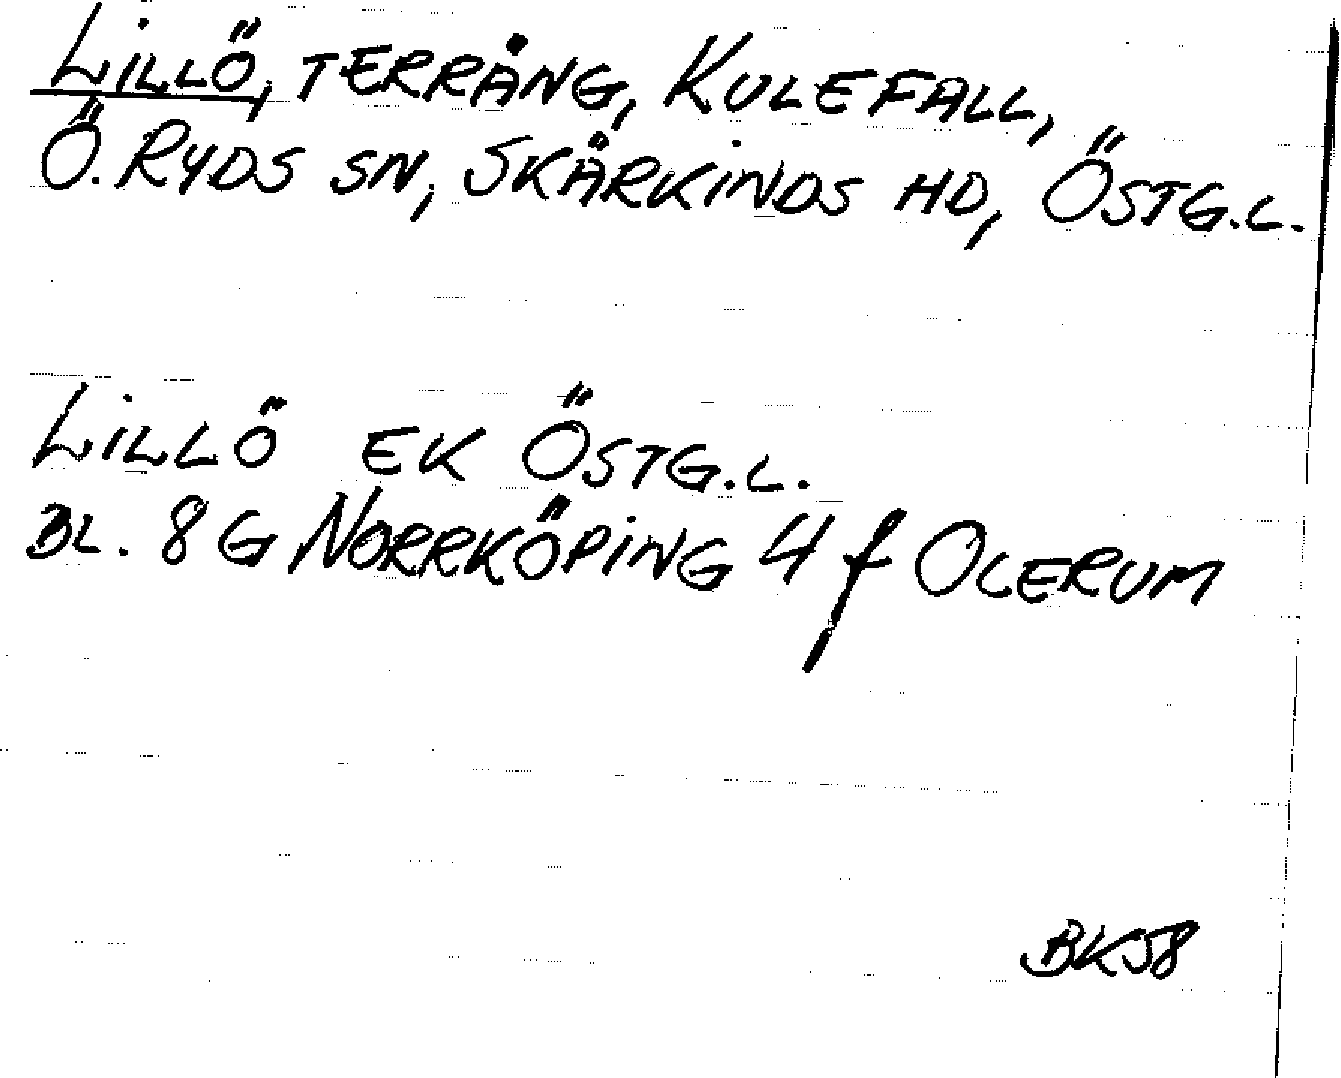 LILLÖ, TERRÄNG, KULEFALL,
Ö. RYDS SN, SKÄRKINDS HD, ÖSTG.L.
LILLÖ EK ÖSTG.L.
BL. 8G NORRKÖPING 4f OLERUM
BK58